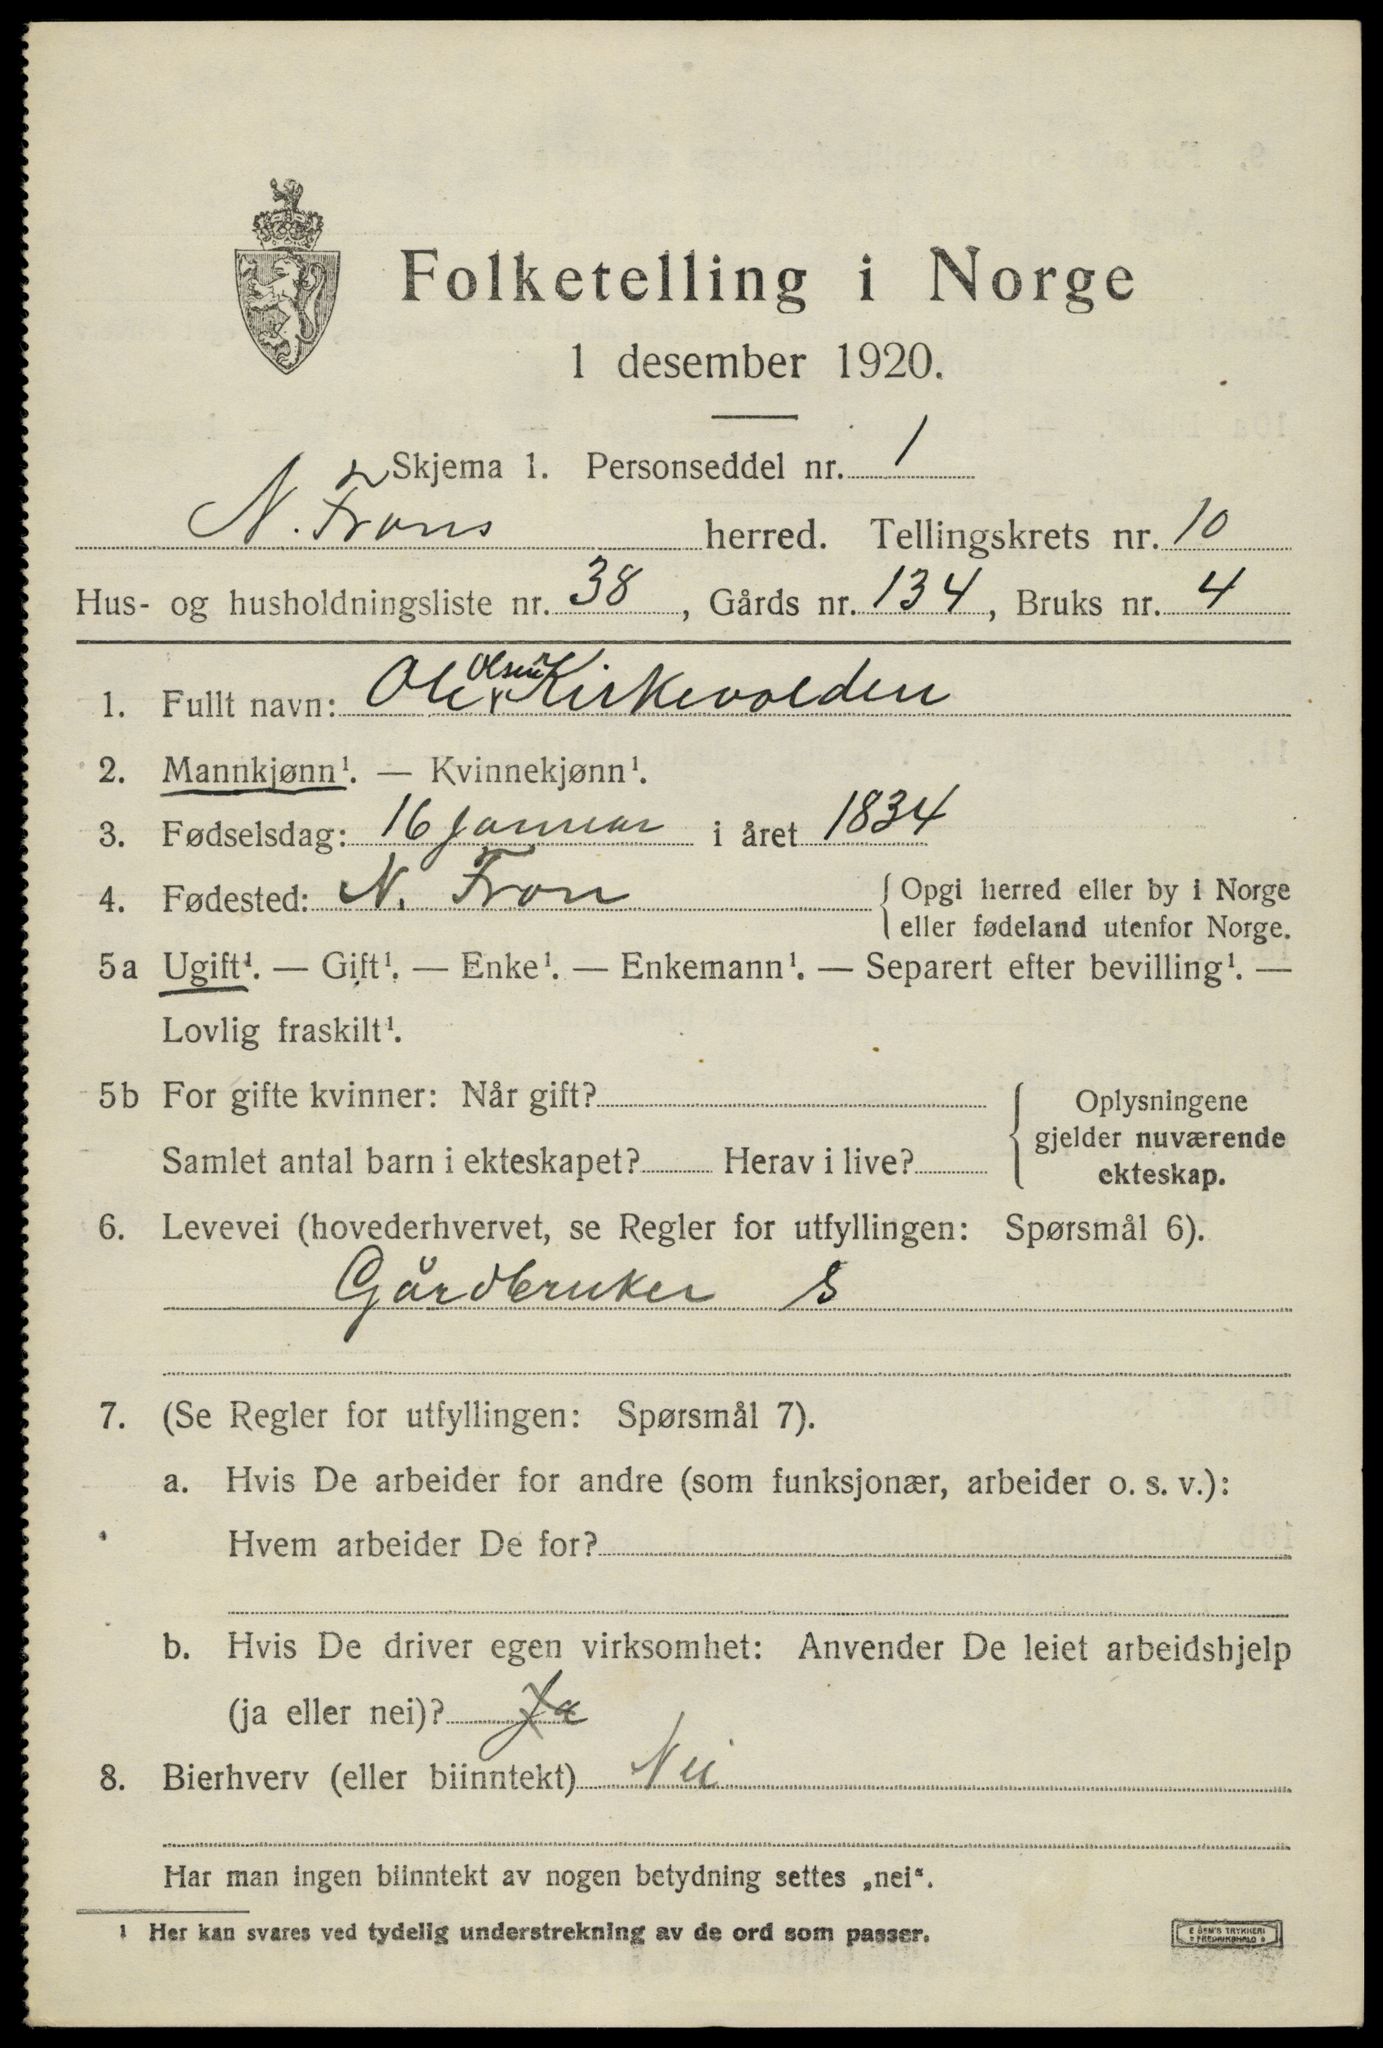 Folketelling i Norge
1 desember 1920.
Skjema 1. Personseddel nr. 1
N. Frons herred. Tellingskrets nr. 10
Hus- og husholdningsliste nr. 38, Gårds nr. 134, Bruks nr. 4
1. Fullt navn: Ole Olsen Kirkevolden
2. Mannkjønn¹. — Kvinnekjønn¹.
3. Fødselsdag: 16 januar i året 1834
4. Fødested: N. Fron { Opgi herred eller by i Norge
eller fødeland utenfor Norge.
5a Ugift¹. — Gift¹. — Enke¹. — Enkemann¹. — Separert efter bevilling¹. —
Lovlig fraskilt¹.
5b For gifte kvinner: Når gift?
Samlet antal barn i ekteskapet? Herav i live?
Oplysningene
gjelder nuværende
ekteskap.
6. Levevei (hovederhvervet, se Regler for utfyllingen: Spørsmål 6).
Gårdbruker S
7. (Se Regler for utfyllingen: Spørsmål 7).
a. Hvis De arbeider for andre (som funksjonær, arbeider o. s. v.):
Hvem arbeider De for?
b. Hvis De driver egen virksomhet: Anvender De leiet arbeidshjelp
(ja eller nei)? Ja
8. Bierhverv (eller biinntekt) Nei
Har man ingen biinntekt av nogen betydning settes „nei“.
¹ Her kan svares ved tydelig understrekning av de ord som passer.
E SEM'S TRYKKERI
FREDRIKSHALD